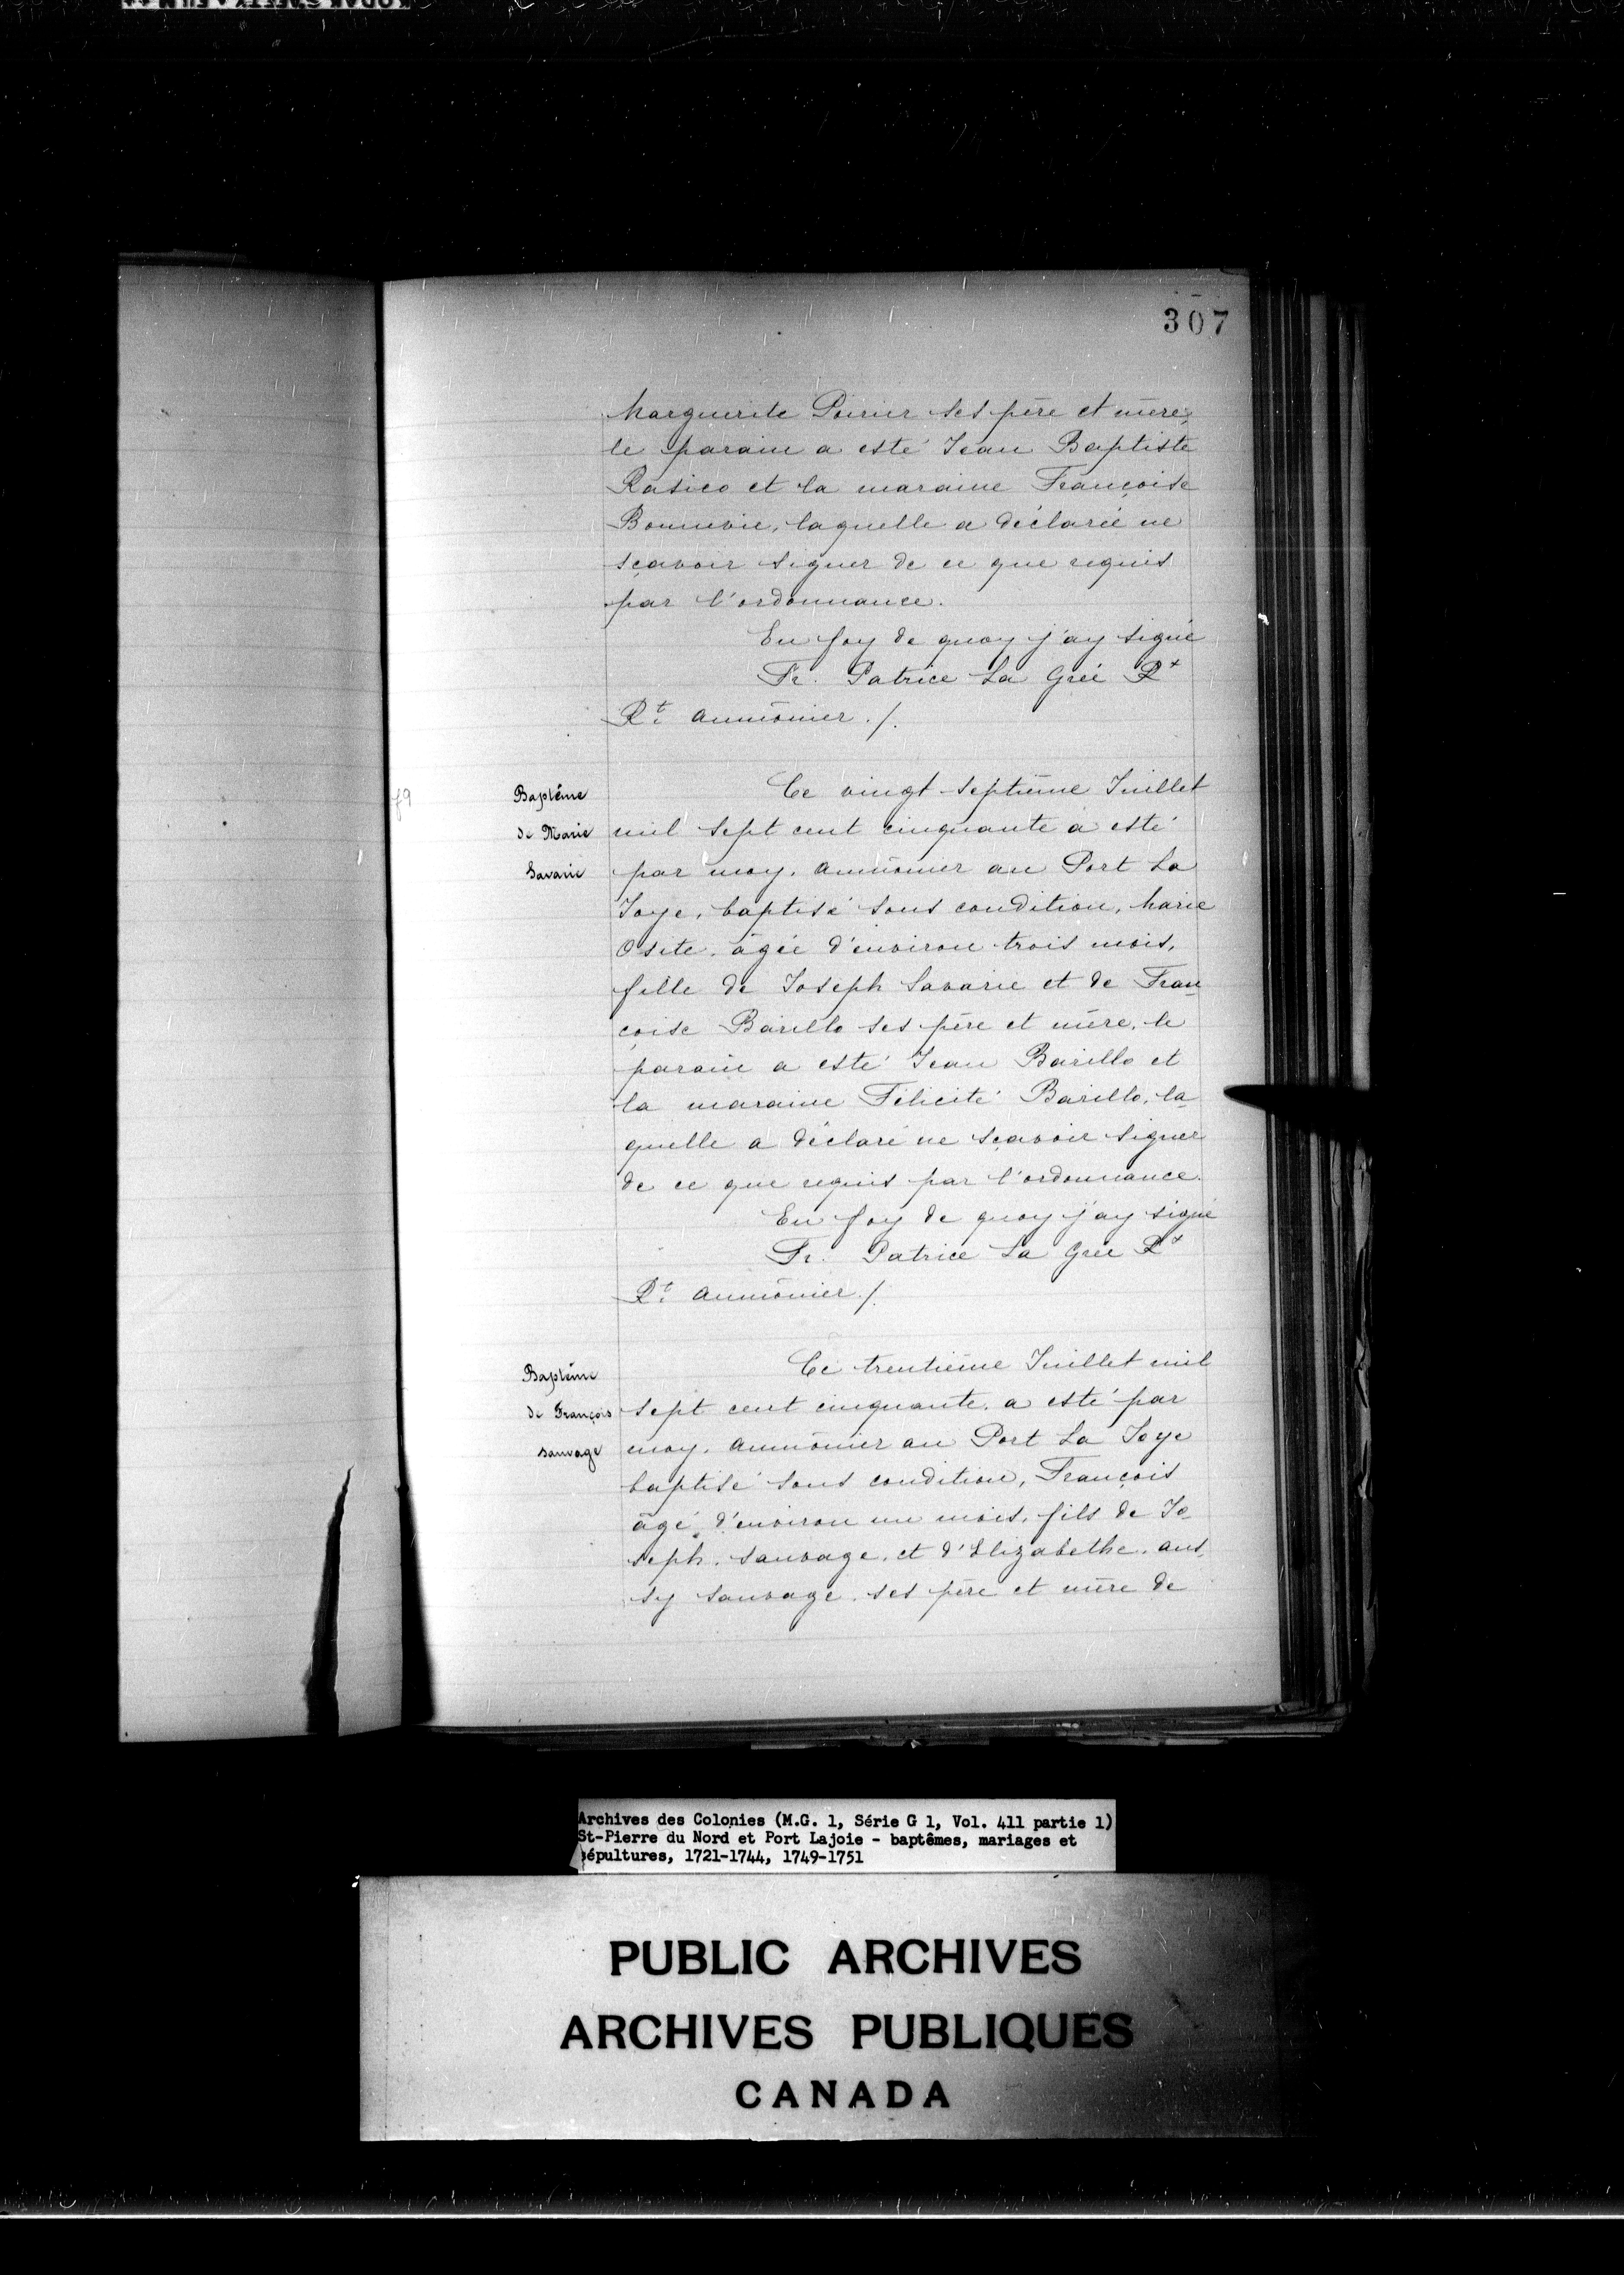 307
Marguerite Poirier ses père et mère,
le parain a esté Jean Baptiste
Rasico et la maraine Françoise
Bonnevie, laquelle a déclarée ne
sçavoir signer de ce que requis
par l'ordonnance.
En foy de quoy j'ay signé
Fr. Patrice La Grée Rt
Rt. aumônier ./.
Baptême
de Marie
Savarie
Ce vingt-septième Juillet
mil sept cent cinquante a esté
par moy, aumônier au Port La
Joye, baptisé sous condition, Marie
Osite, âgée d'environ trois mois,
fille de Joseph Savarie et de Fran-
çoise Barillo ses père et mère, le
parain a esté Jean Barillo et
la maraine Félicité Barillo, la-
quelle a déclaré ne sçavoir signer
de ce que requis par l'ordonnance.
En foy de quoy j'ay signé
Fr. Patrice La Grée Rt
Rt. aumônier ./.
Baptême
de François
sauvage
Ce trentième Juillet mil
sept cent cinquante, a esté par
moy, aumônier au Port La Joye
baptisé sous condition, François
âgé d'environ un mois, fils de Jo-
seph, sauvage, et d'Elizabethe, aus-
sy sauvage, ses père et mère de
Archives des Colonies (M.G. 1, Série G 1, Vol. 411 partie 1)
St-Pierre du Nord et Port Lajoie - baptêmes, mariages et
sépultures, 1721-1744, 1749-1751
PUBLIC ARCHIVES
ARCHIVES PUBLIQUES
CANADA